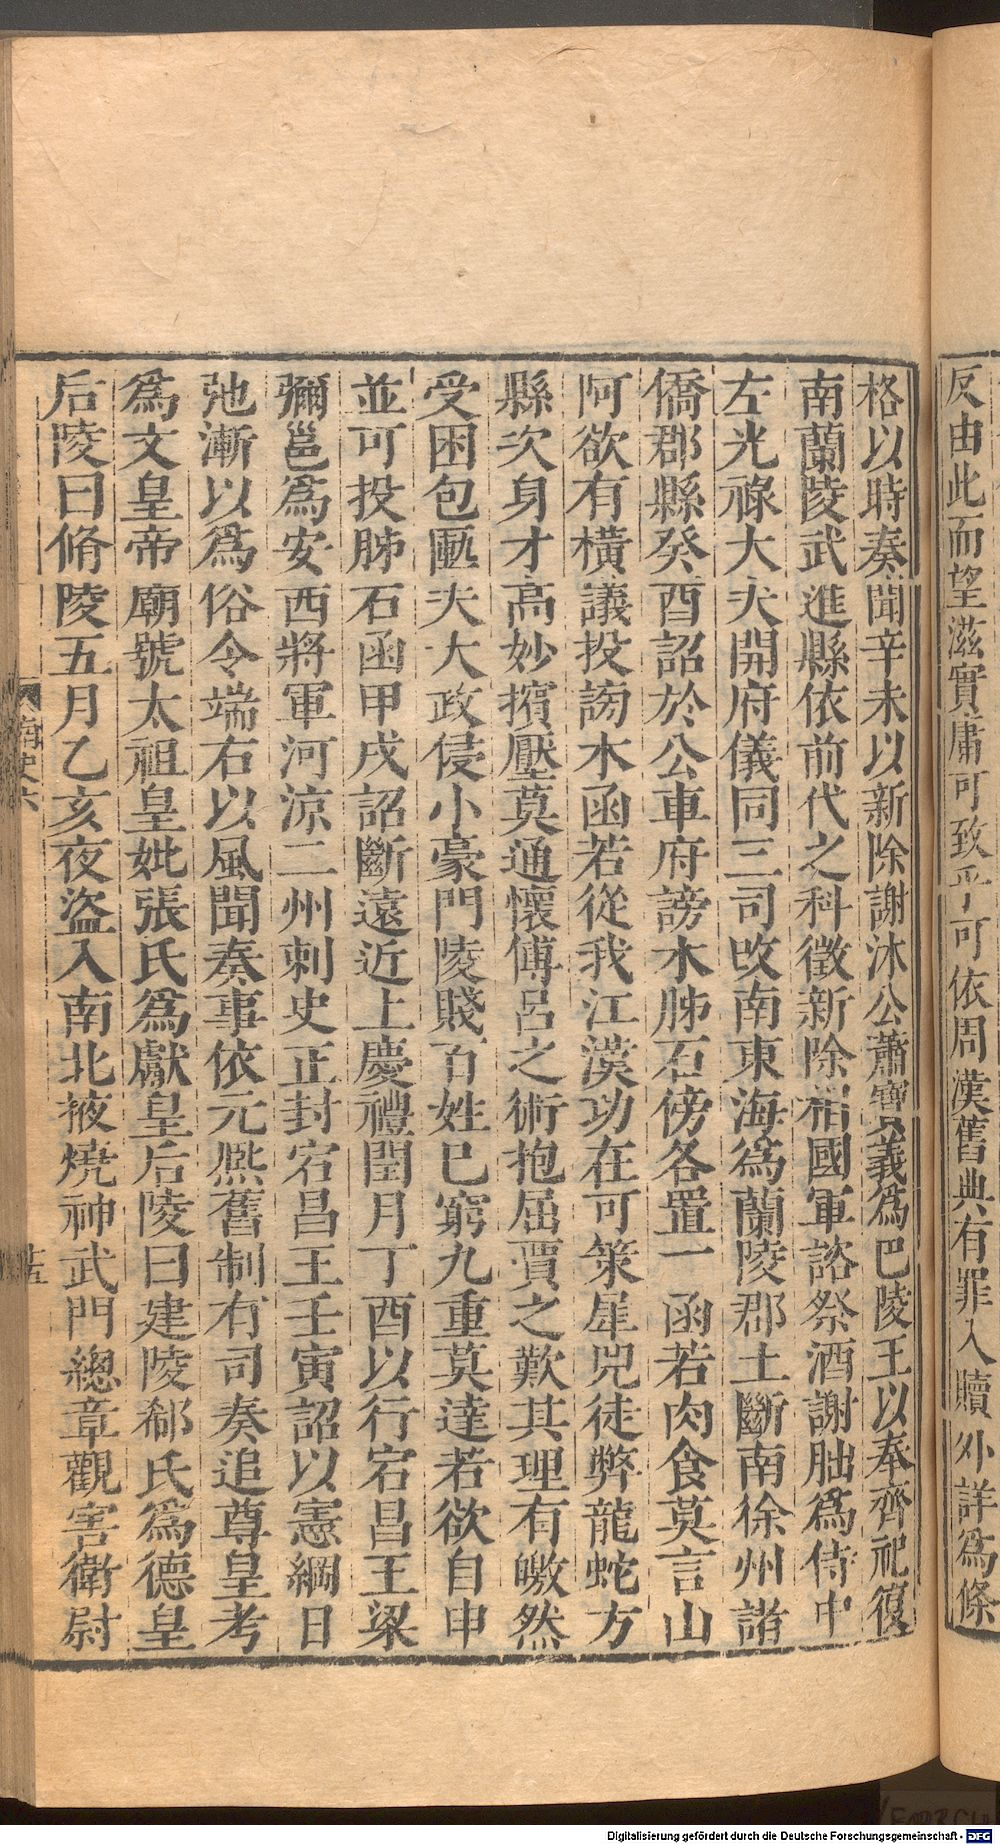 反由此而望滋實庸可致乎可依周漢舊典有罪入贖外詳為條
格以時奏聞辛未以新除謝沐公蕭寶義為巴陵王以奉齊祀復
南蘭陵武進縣依前代之科徵新除相國軍諮祭酒謝朏為侍中
左光祿大夫開府儀同三司改南東海為蘭陵郡土斷南徐州諸
僑郡縣癸酉詔於公車府謗木肺石傍各置一函若肉食莫言山
阿欲有橫議投謗木函若從我江漢功在可策犀兕徒弊龍蛇方
縣次身才高妙擯壓莫通懷傅呂之術抱屈賈之歎其理有皦然
受困包匭夫大政侵小豪門陵賤百姓巳窮九重莫達若欲自申
並可投肺石函甲戌詔斷遠近上慶禮閏月丁酉以行宕昌王梁
彌邕為安西將軍河涼二州刺史正封宕昌王壬寅詔以憲綱日
弛漸以為俗令端右以風聞奏事依元熙舊制有司奏追尊皇考
為文皇帝廟號太祖皇妣張氏為獻皇后陵曰建陵郗氏為德皇
后陵曰脩陵五月乙亥夜盜入南北掖燒神武門總章觀害衛尉
南史六
十五
Digitalisierung gefördert durch die Deutsche Forschungsgemeinschaft - DFG